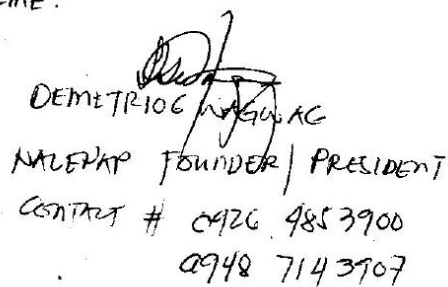 DEMETRIO G WAGWAG
NALENAP FOUNDER / PRESIDENT
CONTACT # 0926 4853900
0948 7143907